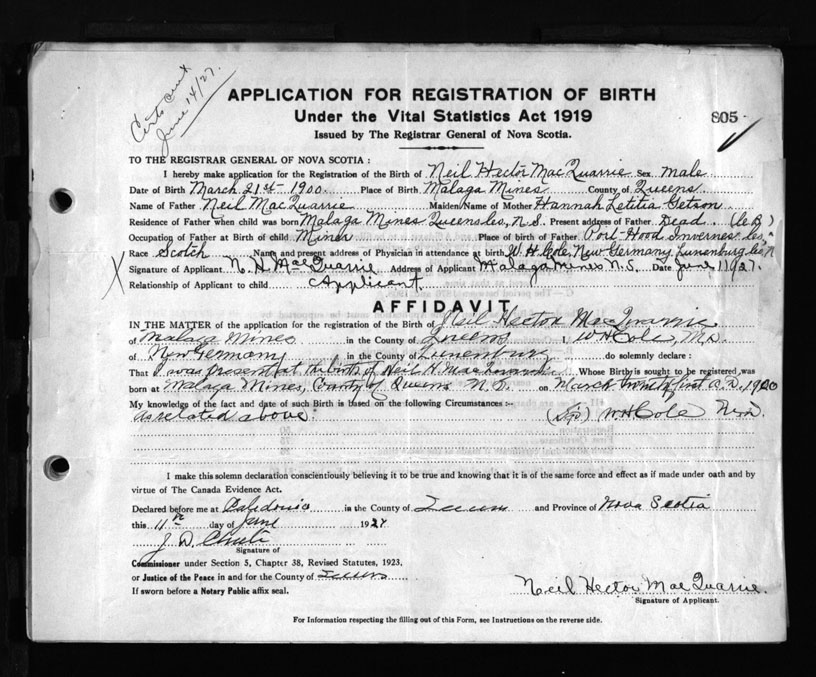 Certs sent
June 14/27.
APPLICATION FOR REGISTRATION OF BIRTH
Under the Vital Statistics Act 1919
805
Issued by The Registrar General of Nova Scotia.
TO THE REGISTRAR GENERAL OF NOVA SCOTIA :
I hereby make application for the Registration of the Birth of Neil Hector MacQuarrie Sex male
Date of Birth March 21st 1900. Place of Birth Malaga Mines County of Queens
Name of Father Neil MacQuarrie Maiden Name of Mother Hannah Letitia Getson
Residence of Father when child was born Malaga Mines Queens Co, N.S. Present address of Father Dead
Occupation of Father at Birth of child Miner Place of birth of Father Port-Hood Inverness Co,
Race Scotch Name and present address of Physician in attendance at birth W. H. Cole, New Germany, Lunenburg Co N
X Signature of Applicant N. H MacQuarrie Address of Applicant Malaga Mines N.S. Date June 11 1927.
Relationship of Applicant to child Applicant.
AFFIDAVIT.
IN THE MATTER of the application for the registration of the Birth of Neil Hector MacQuarrie
of Malaga Mines in the County of Queens I, W H Cole, M.D.
of New Germany in the County of Lunenburg do solemnly declare :
That I was present at the birth of Neil H. MacQuarrie Whose Birth is sought to be registered, was
born at Malaga Mines, County of Queens N.S. on March twenty first A.D. 1900
My knowledge of the fact and date of such Birth is based on the following Circumstances :--
as related above. (Sgd) W H Cole
I make this solemn declaration conscientiously believing it to be true and knowing that it is of the same force and effect as if made under oath and by
virtue of The Canada Evidence Act.
Declared before me at Caledonia in the County of Queens and Province of Nova Scotia
this 11th day of June 1927
J. D.
Signature of
Commissioner under Section 5, Chapter 38, Revised Statutes, 1923,
or Justice of the Peace in and for the County of Queens
If sworn before a Notary Public affix seal.
Neil Hector MacQuarrie.
Signature of Applicant.
For Information respecting the filling out of this Form, see Instructions on the reverse side.